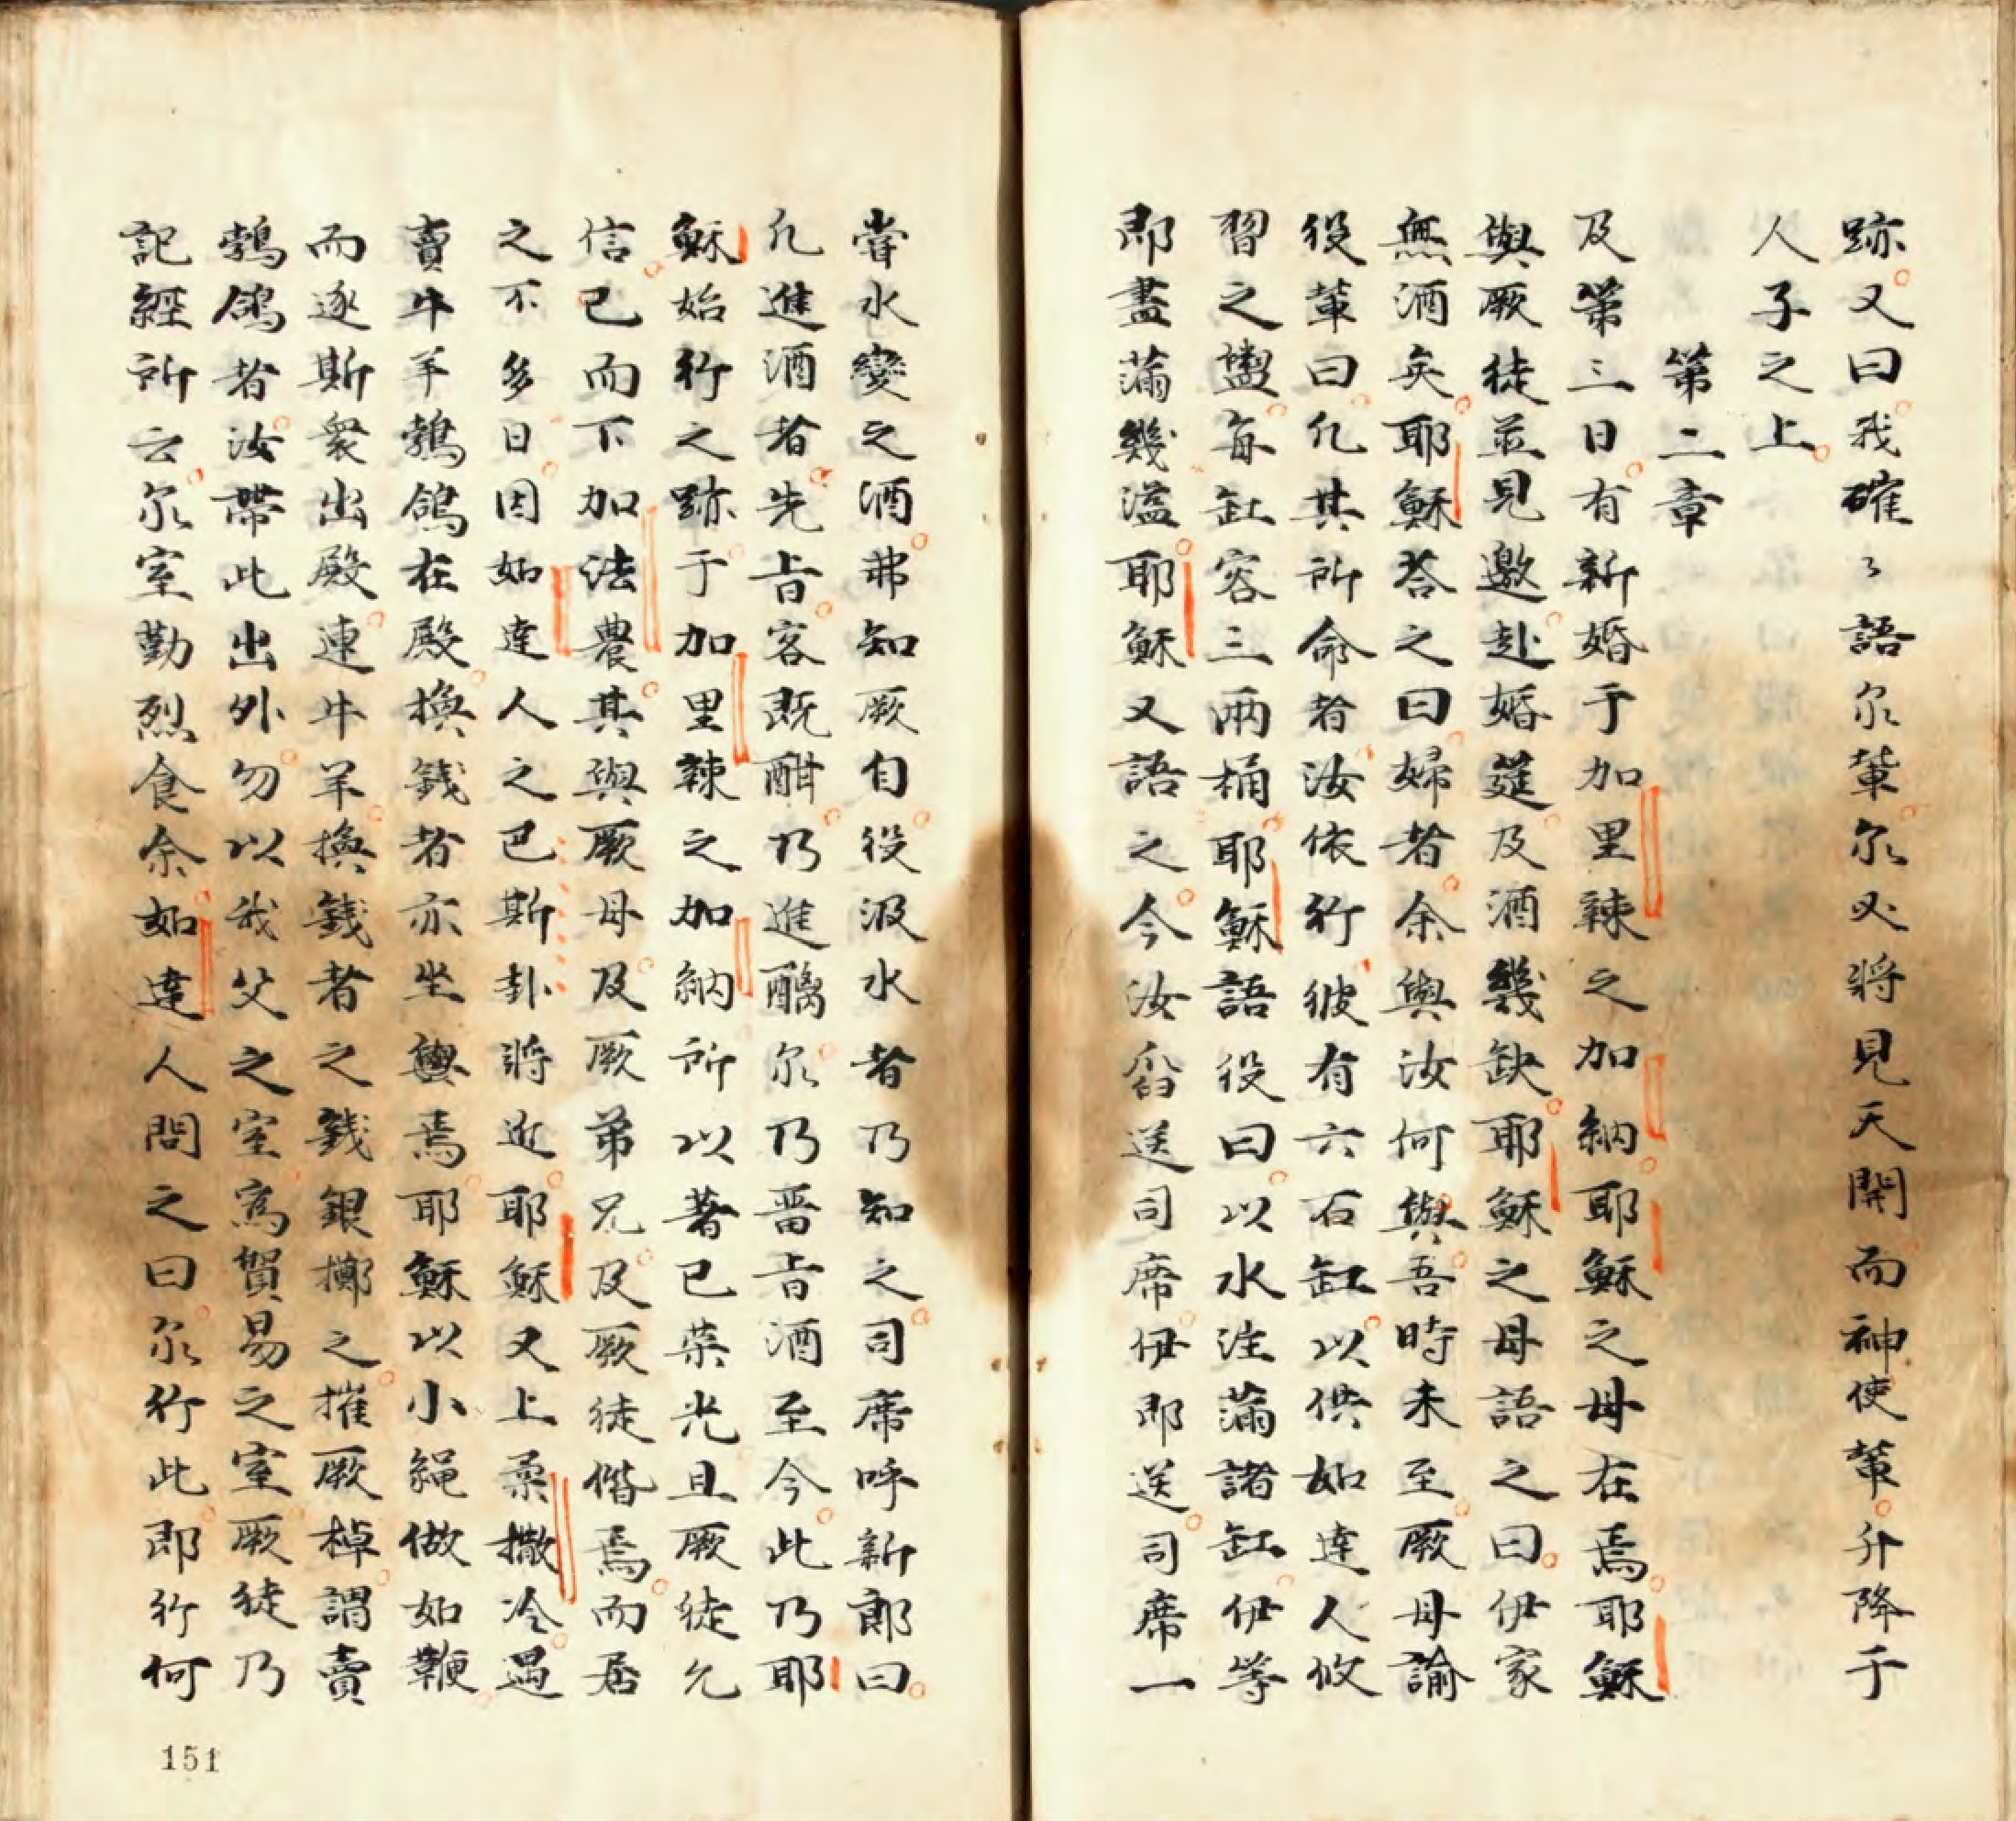 跡又曰我確〻語尔輩尔必將見天開而神使輩升降于
人子之上
第二章
及第三日有新婚于加里辣之加納耶穌之母在焉耶穌
與厥徒並見邀赴婚筵及酒幾缺耶穌之母語之曰伊家
無酒矣耶穌荅之曰婦者余與汝何與吾時未至厥母諭
役輩曰凡其所命者汝依行彼有六石缸以供如達人攸
習之盥每缸容三兩桶耶穌語役曰以水注滿諸缸伊等
即盡滿幾溢耶穌又語之今汝舀送司席伊即送司席一
嘗水變之酒弗知厥自役汲水者乃知之司席呼新郎曰
凡進酒者先旨客既酣乃進醨尔乃畱旨酒至今此乃耶
穌始行之跡于加里辣之加納所以著已榮光且厥徒允
信已而下加法農其與厥母及厥弟兄及厥徒偕焉而居
之不多日因如達人之巴斯卦將近耶穌又上柔撒冷遇
賣牛羊鵓鴿在殿換錢者亦坐與焉耶穌以小繩做如鞭
而逐斯衆出殿連牛羊換錢者之錢銀擲之摧厥棹謂賣
鵓鴿者汝帶此出外勿以我父之室寫貿易之室厥徒乃
記經所云尔室勤烈食余如達人問之曰尔行此即行何
151